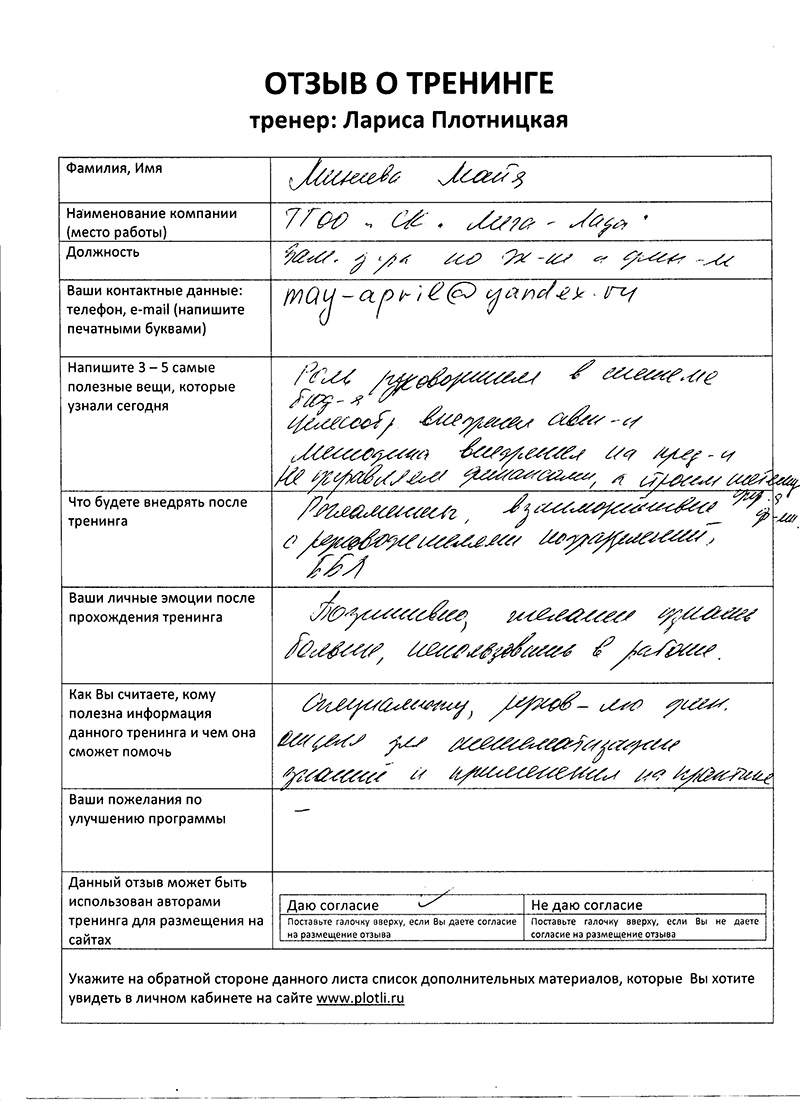 ОТЗЫВ О ТРЕНИНГЕ
тренер: Лариса Плотницкая
Фамилия, Имя
Минеева Майя
Наименование компании
(место работы)
ТГОО "СК "Лига - Лада"
Должность
Зам. д-ра по эк-ке и фин-м
Ваши контактные данные:
телефон, e-mail (напишите
печатными буквами)
may-april@yandex.ru
Напишите 3 – 5 самые
полезные вещи, которые
узнали сегодня
Роль руководителя в системе
бюд-я
Целесообр. внедрения авт-и
Методика внедрения на пред-и
Не управляем финансами, а строим систему
упр-я
ф-ми
Что будете внедрять после
тренинга
Регламенты, взаимодействие
с руководителями подразделений,
ББЛ
Ваши личные эмоции после
прохождения тренинга
Позитивно, желание узнать
больше, использовать в работе.
Как Вы считаете, кому
полезна информация
данного тренинга и чем она
сможет помочь
Специалисту, руков-лю фин.
отдела для систематизации
знаний и применения на практике
Ваши пожелания по
улучшению программы
–
Данный отзыв может быть
использован авторами
тренинга для размещения на
сайтах
Даю согласие ✓
Поставьте галочку вверху, если Вы даете согласие
на размещение отзыва
Не даю согласие
Поставьте галочку вверху, если Вы не даете
согласие на размещение отзыва
Укажите на обратной стороне данного листа список дополнительных материалов, которые Вы хотите
увидеть в личном кабинете на сайте www.plotli.ru